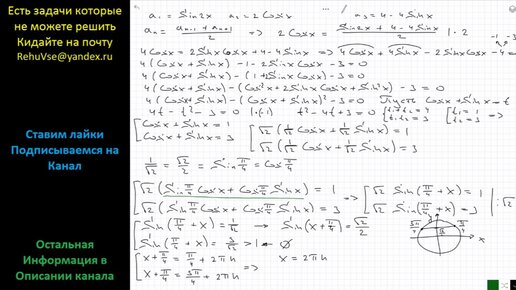 Есть задачи которые
не можете решить
Кидайте на почту
RehuVse@yandex.ru
Ставим лайки
Подписываемся на
Канал
Остальная
Информация в
Описании канала
a₁ = Sin2x a₂ = 2Cosx a₃ = 4 - 4Sinx
aₙ = (aₙ₋₁ + aₙ₊₁)/2 => 2Cosx = (Sin2x + 4 - 4Sinx)/2 | · 2
4Cosx = 2SinxCosx + 4 - 4Sinx => 4Cosx + 4Sinx - 2SinxCosx - 4 =
4(Cosx + Sinx) - 1 - 2SinxCosx - 3 = 0
4(Cosx + Sinx) - (1 + 2SinxCosx) - 3 = 0
4(Cosx + Sinx) - (Cos²x + 2SinxCosx + Sin²x) - 3 = 0
4(Cosx + Sinx) - (Cosx + Sinx)² - 3 = 0 Пусть Cosx + Sinx = t
4t - t² - 3 = 0 | · (-1)
[Cosx + Sinx = 1
[Cosx + Sinx = 3
[√2 (1/√2 Cosx + 1/√2 Sinx) = 1
[√2 (1/√2 Cosx + 1/√2 Sinx) = 3
1/√2 = √2/2 = Sin π/4 = Cos π/4
[√2 (Sin π/4 Cosx + Cos π/4 Sinx) = 1
[√2 (Sin π/4 Cosx + Cos π/4 Sinx) = 3
=> [√2 Sin(π/4 + x) = 1
[√2 Sin(π/4 + x) = 3 | : √2
[Sin(π/4 + x) = 1/√2 -> Sin(x + π/4) = √2/2
[Sin(π/4 + x) = 3/√2 > 1 - ∅
[x + π/4 = π/4 + 2πn
[x + π/4 = 3π/4 + 2πn =>
x = 2πn